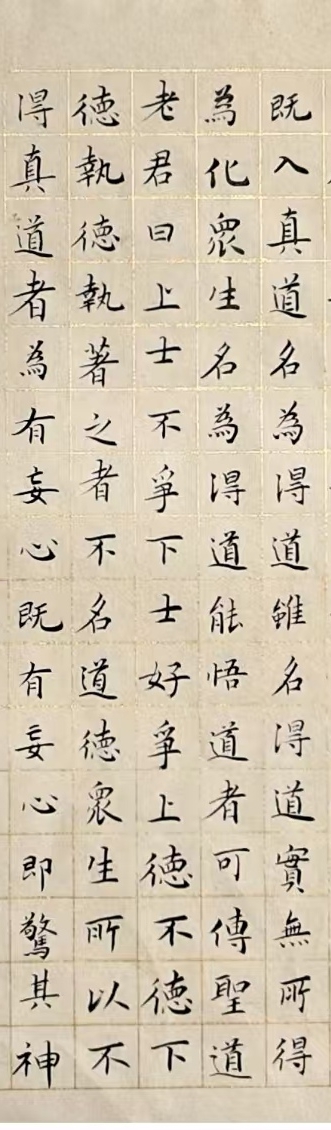 既入真道名為得道雖名得道實無所得
為化眾生名為得道能悟道者可傳聖道
老君曰上士不爭下士好爭上德不德下
德執德執著之者不名道德眾生所以不
得真道者為有妄心既有妄心即驚其神